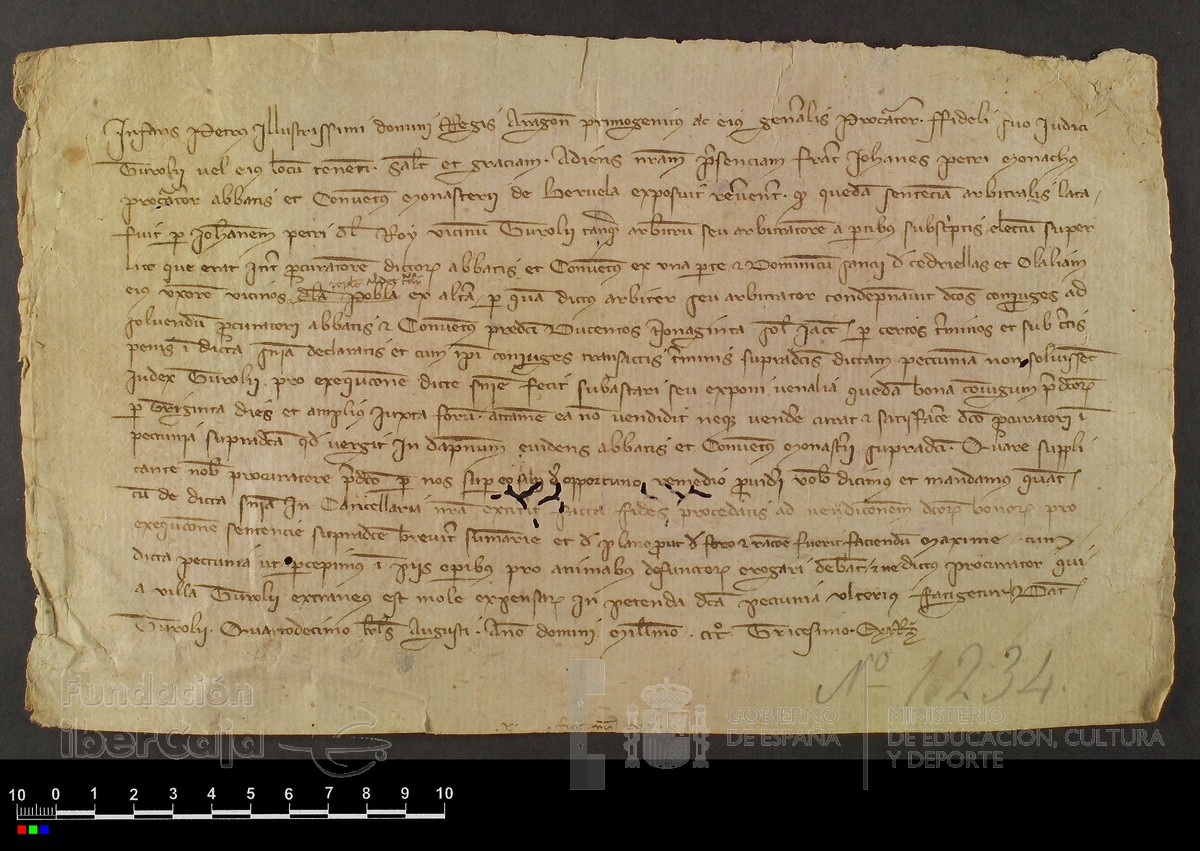 Infans Petrus Illustrissimi domini Regis Aragon primogenitus ac eius gen̄alis Procurator. ffideli suo Iudici
Turolii vel eius locū tenenti. Salt̄ et graciam. Adiens n̄ram p̄senciam frat̄ Iohanes petri monachus
procurator abbatis et Conventus monasterii de Beruela exposuit rev̄ent̄. qd̄ quedā sentēcia arbitralis lata
fuit p Ioh̄anem petri dl̄ Roy vicinū Turolii tanq̄ arbitrū seu arbitratorē a ptibus subsc̄ptis electū super
lite que erat int̄ pcuratorē dictor̄ abbatis et Conventus ex una pte & Dominicū sancii d̄ cedriellas et Olaliam
eius uxorē vicinos d̄ la Pobla ex alt̄a. p quā dictus arbiter seu arbitrator condēpnavit dc̄os coniuges ad
solvendū pcuratori abbatis & Conventus predc̄i Ducentos Nonaginta sol̄ Iacc̄. p certos t̄minos et sub c̄tis
penis ī dicta sn̄ia declaratis et cum ip̄i coniuges transactis t̄minis supradc̄is dictam peccuniā non solvissēt
Iudex Turolii. pro exequcionē dicte sn̄ie fecit subastari seu exponi venalia quedā bona coniugum p̄dc̄or̄
p Triginta dies et amplius iuxta forū. attamē ea nō vendidit neque vendē curat & satisfacē dc̄o pcuratori ī
peccunia supradc̄a qd̄ vergit in dapnum evidens abbatis et Conventus monast̄ii supradc̄i. Quare suppli
cante nob̄ procuratore p̄dc̄o p nos sup eo opportuno remedio pvidēi vob̄ dicimus et mandamus quat̄
cū de dicta sn̄ia in Cancellaria nr̄a extitit facta fides procedatis ad vendicionem dc̄or̄ bonor̄ pro
exequcionē sentencie supradc̄e brevit̄ sūmarie et d̄ plano prout d̄ foro & rac̄oe fuerit faciendū maxime cum
dicta peccunia ut pcepimus ī piis opibus pro animabus defunctor̄ erogari debeat & ne dictus procurator qui
a villa Turolii extraneus est mole expensar̄ in petenda dc̄a peccunia ulterius fatigetur. Dat̄
Turolii. Quartodecimo kl̄s Augusti. Anō domini Mill̄mo. ccc̄. Tricesimo.
Nº 1234.
Fundación
iberCaja
GOBIERNO
DE ESPAÑA
MINISTERIO
DE EDUCACIÓN, CULTURA
Y DEPORTE
10 0 1 2 3 4 5 6 7 8 9 10